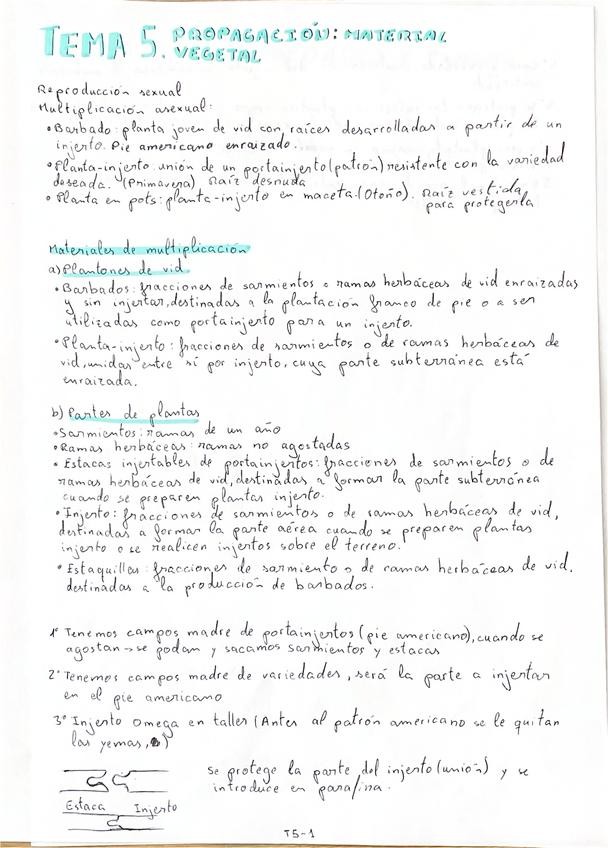 TEMA 5. PROPAGACIÓN: MATERIAL
VEGETAL
Reproducción sexual
Multiplicación asexual:
• Barbado: planta joven de vid con raíces desarrolladas a partir de un
injerto. Pie americano enraizado.
• Planta-injerto: unión de un portainjerto (patrón) resistente con la variedad
deseada. (Primavera) Raíz desnuda
• Planta en pots: planta-injerto en maceta. (Otoño). Raíz vestida
para protegerla
Materiales de multiplicación
a) Plantones de vid
• Barbados: fracciones de sarmientos o ramas herbáceas de vid enraizadas
y sin injertar, destinadas a la plantación franco de pie o a ser
utilizadas como portainjerto para un injerto.
• Planta-injerto: fracciones de sarmientos o de ramas herbáceas de
vid, unidas entre sí por injerto, cuya parte subterránea está
enraizada.
b) Partes de plantas
• Sarmientos: ramas de un año
• Ramas herbáceas: ramas no agostadas
• Estacas injertables de portainjertos: fracciones de sarmientos o de
ramas herbáceas de vid, destinadas a formar la parte subterránea
cuando se preparen plantas injerto.
• Injerto: fracciones de sarmientos o de ramas herbáceas de vid,
destinadas a formar la parte aérea cuando se preparen plantas
injerto o se realicen injertos sobre el terreno.
• Estaquillas: fracciones de sarmiento o de ramas herbáceas de vid,
destinadas a la producción de barbados.
1º Tenemos campos madre de portainjertos (pie americano), cuando se
agostan → se podan y sacamos sarmientos y estacas
2º Tenemos campos madre de variedades, será la parte a injertar
en el pie americano
3º Injerto Omega en taller (Antes al patrón americano se le quitan
las yemas, )
Se protege la parte del injerto (unión) y se
introduce en parafina.
Estaca Injerto
T5-1